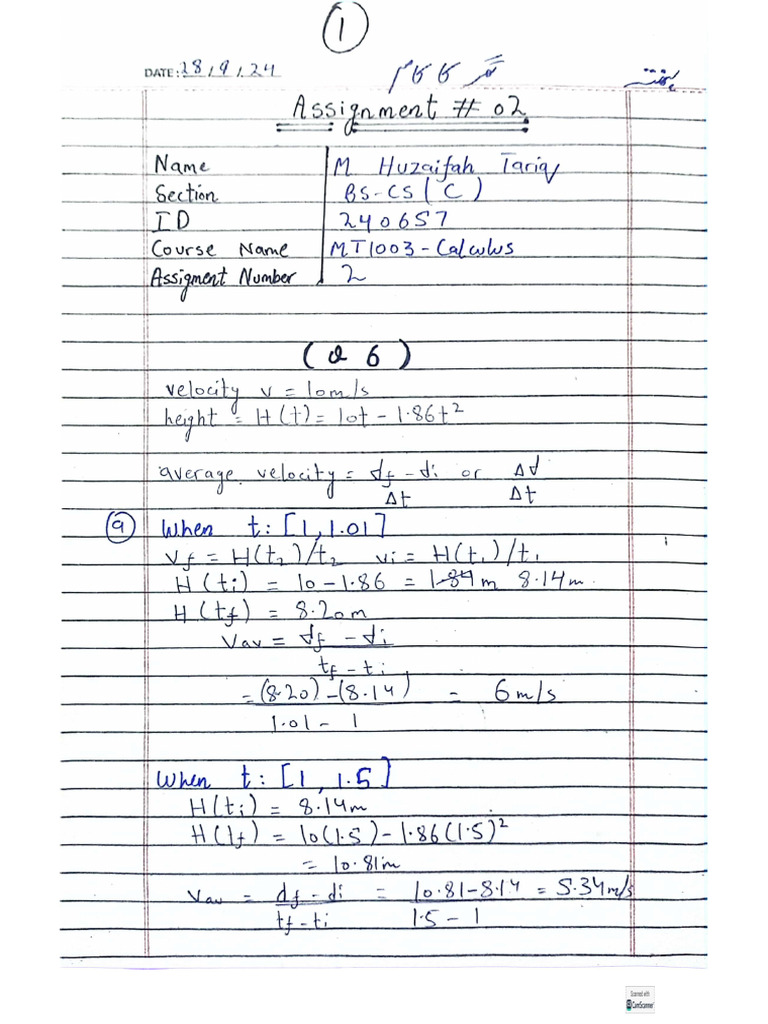 1
DATE: 28/9/24
Assignment # 02
Name M Huzaifah Tariq
Section BS-CS (C)
ID 240657
Course Name MT1003-Calculus
Assigment Number 2
(Q 6)
velocity v = 10m/s
height = H(t) = 10t - 1.86t²
average velocity = df - di or Δd
Δt Δt
(a) When t: [1, 1.01]
Vf = H(t₂)/t₂ Vi = H(t₁)/t₁
H(ti) = 10 - 1.86 = 1.84m 8.14m.
H(tf) = 8.20m
Vav = df - di
tf - ti
= (8.20) - (8.14) = 6m/s
1.01 - 1
When t: [1, 1.5]
H(ti) = 8.14m
H(tf) = 10(1.5) - 1.86(1.5)²
= 10.81m
Vav = df - di = 10.81 - 8.14 = 5.34m/s
tf - ti 1.5 - 1
Scanned with
CamScanner